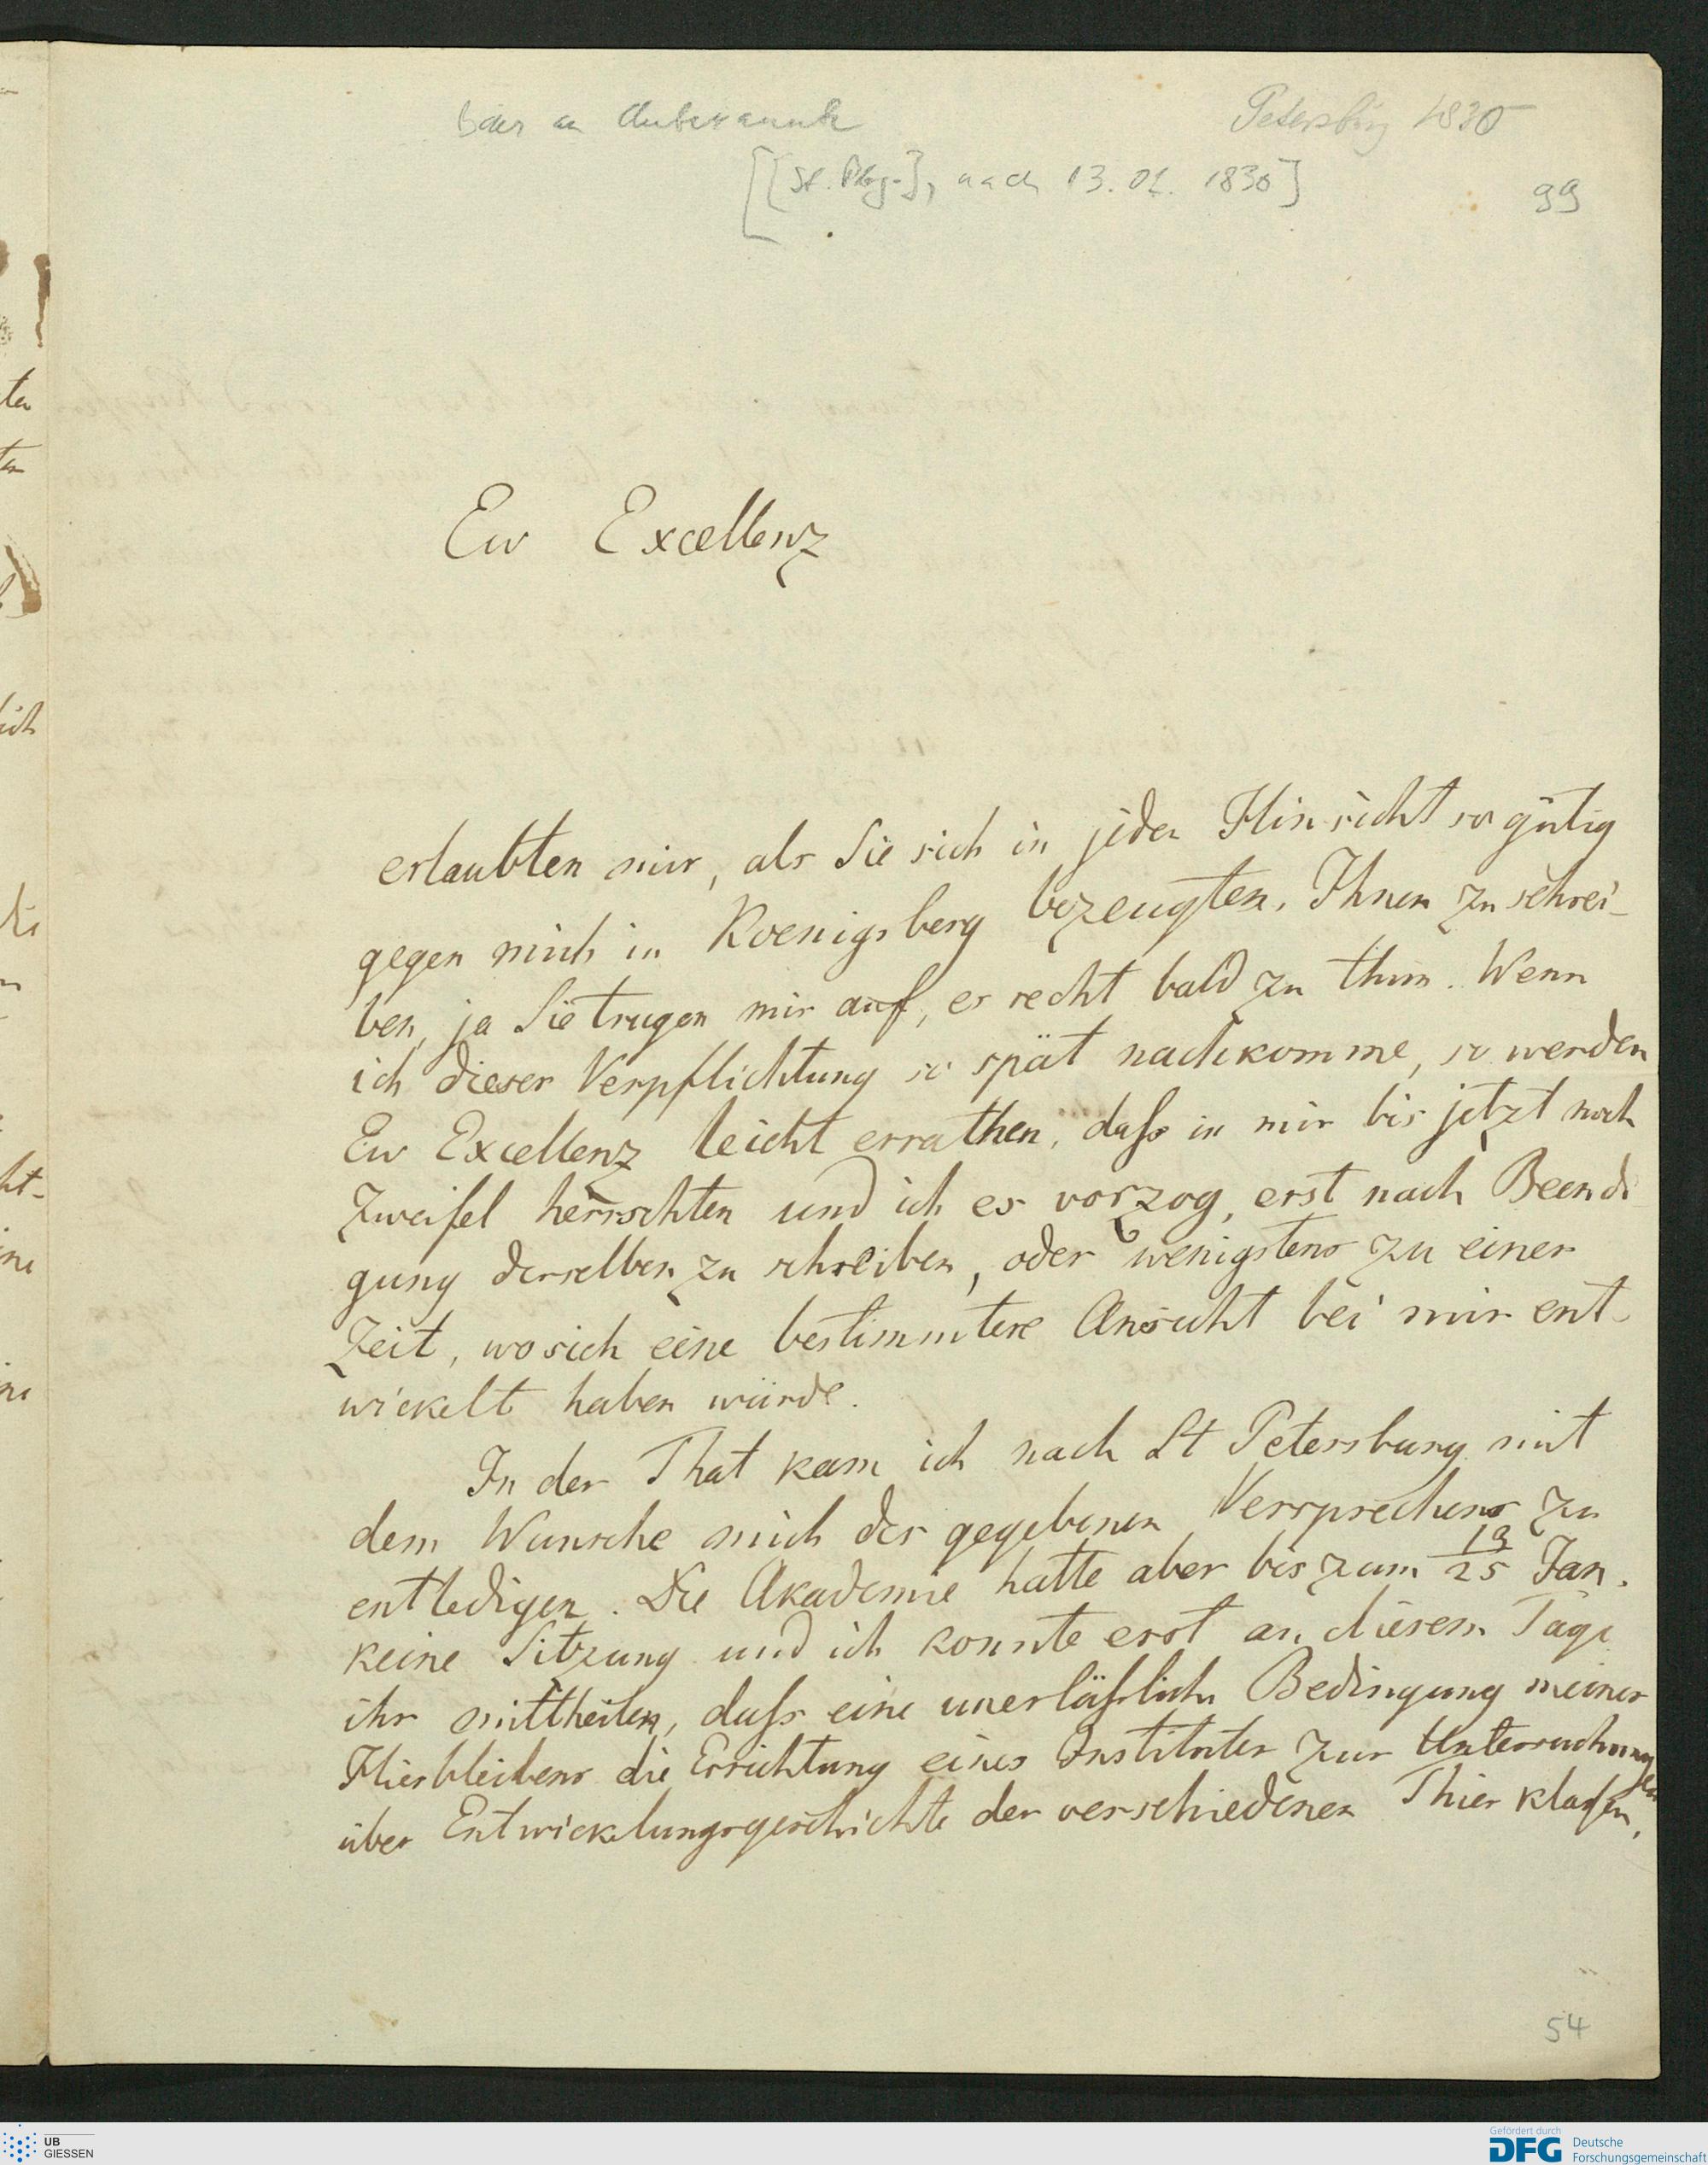 Baer an Unbekannt
Petersburg 1830
[[St. Pbg.], nach 13.01. 1830]
99
Ew Excellenz
erlaubten mir, als Sie sich in jeder Hinsicht so gütig
gegen mich in Koenigsberg bezeugten, Ihnen zu schrei-
ben, ja Sie trugen mir auf, es recht bald zu thun. Wenn
ich dieser Verpflichtung so spät nachkomme, so werden
Ew Excellenz leicht errathen, daß in mir bis jetzt noch
Zweifel herrschten und ich es vorzog, erst nach Beendi
gung derselben zu schreiben, oder wenigstens zu einer
Zeit, wo sich eine bestimmtere Ansicht bei mir ent-
wickelt haben würde.
In der That kam ich nach St Petersburg mit
dem Wunsche mich des gegebenen Versprechens zu
entledigen. Die Akademie hatte aber bis zum 13/25 Jan.
keine Sitzung und ich konnte erst an diesem Tage
ihr mittheilen, daß eine unerläßliche Bedingung meines
Hierbleibens die Errichtung eines Institutes zur Untersuchungen
über Entwickelungsgeschichte der verschiedenen Thierklaßen,
54
ta
ten
lich
te
ht-
ine
UB
GIESSEN
Gefördert durch
DFG Deutsche
Forschungsgemeinschaft